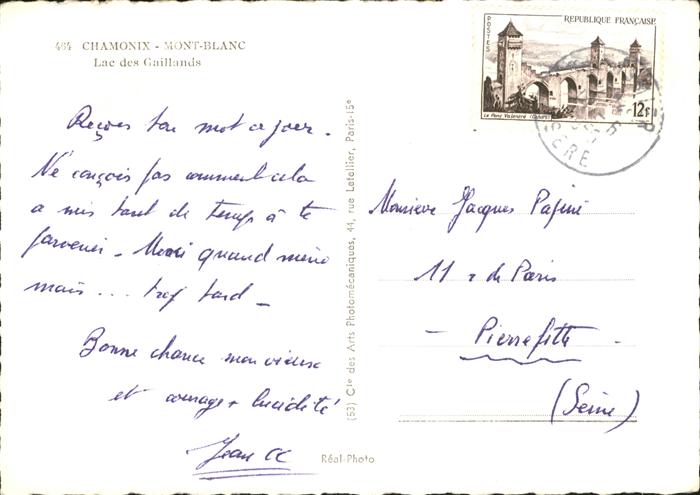 464 CHAMONIX - MONT-BLANC
Lac des Gaillands
Reçois ton mot ce jour.
Ne conçois pas comment cela
a mis tant de temps à te
parvenir - Merci quand même
mais... trop tard -
Bonne chance mon vieux
et courage + lucidité
Jean
(53) Cie des Arts Photomécaniques, 44, rue Letellier, Paris-15e
Réal-Photo
POSTES
REPUBLIQUE FRANÇAISE
12f
Le Pont Valentré (Cahors)
ERE
Monsieur Jacques Pagini
11 r de Paris
- Pierrefitte
(Seine)